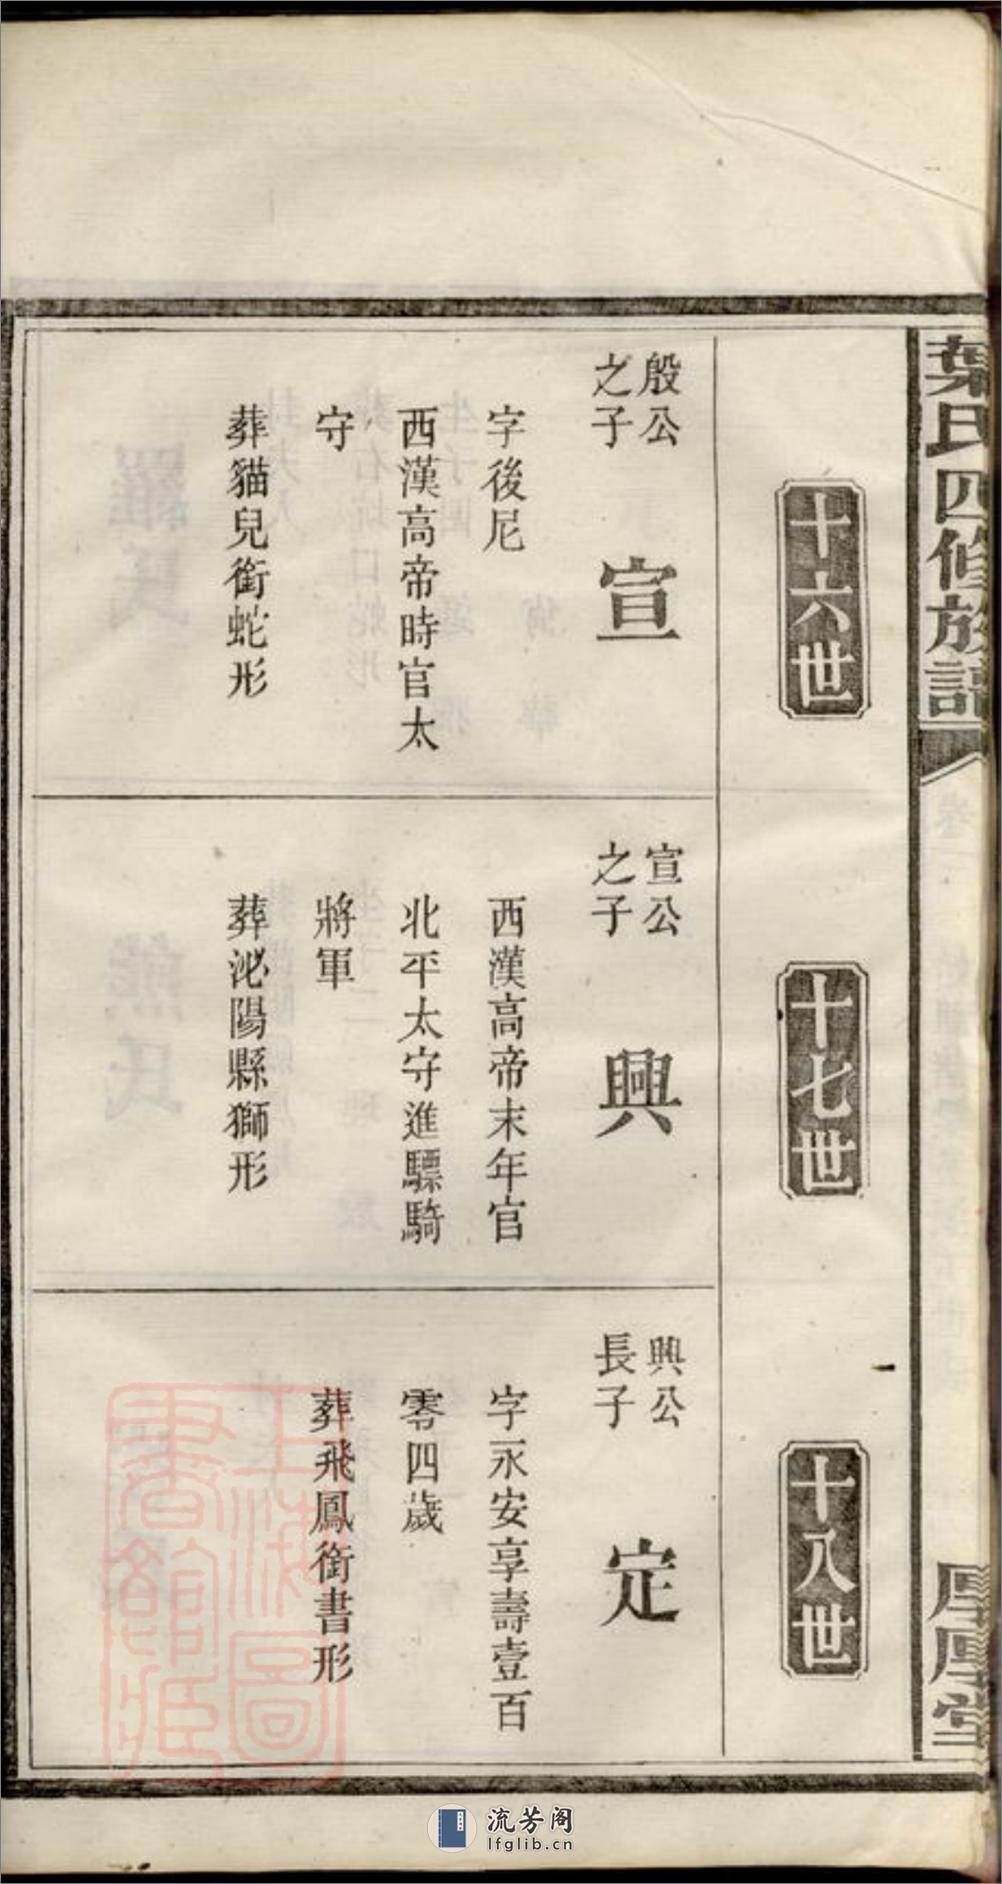 葉氏四修族譜
厚厚堂
十六世
殷公
之子
宣
字後尼
西漢高帝時官太
守
葬貓兒銜蛇形
十七世
宣公
之子
興
西漢高帝末年官
北平太守進驃騎
將軍
葬泌陽縣獅形
十八世
興公
長子
定
字永安享壽壹百
零四歲
葬飛鳳銜書形
上海圖書館藏
流芳阁
lfglib.cn